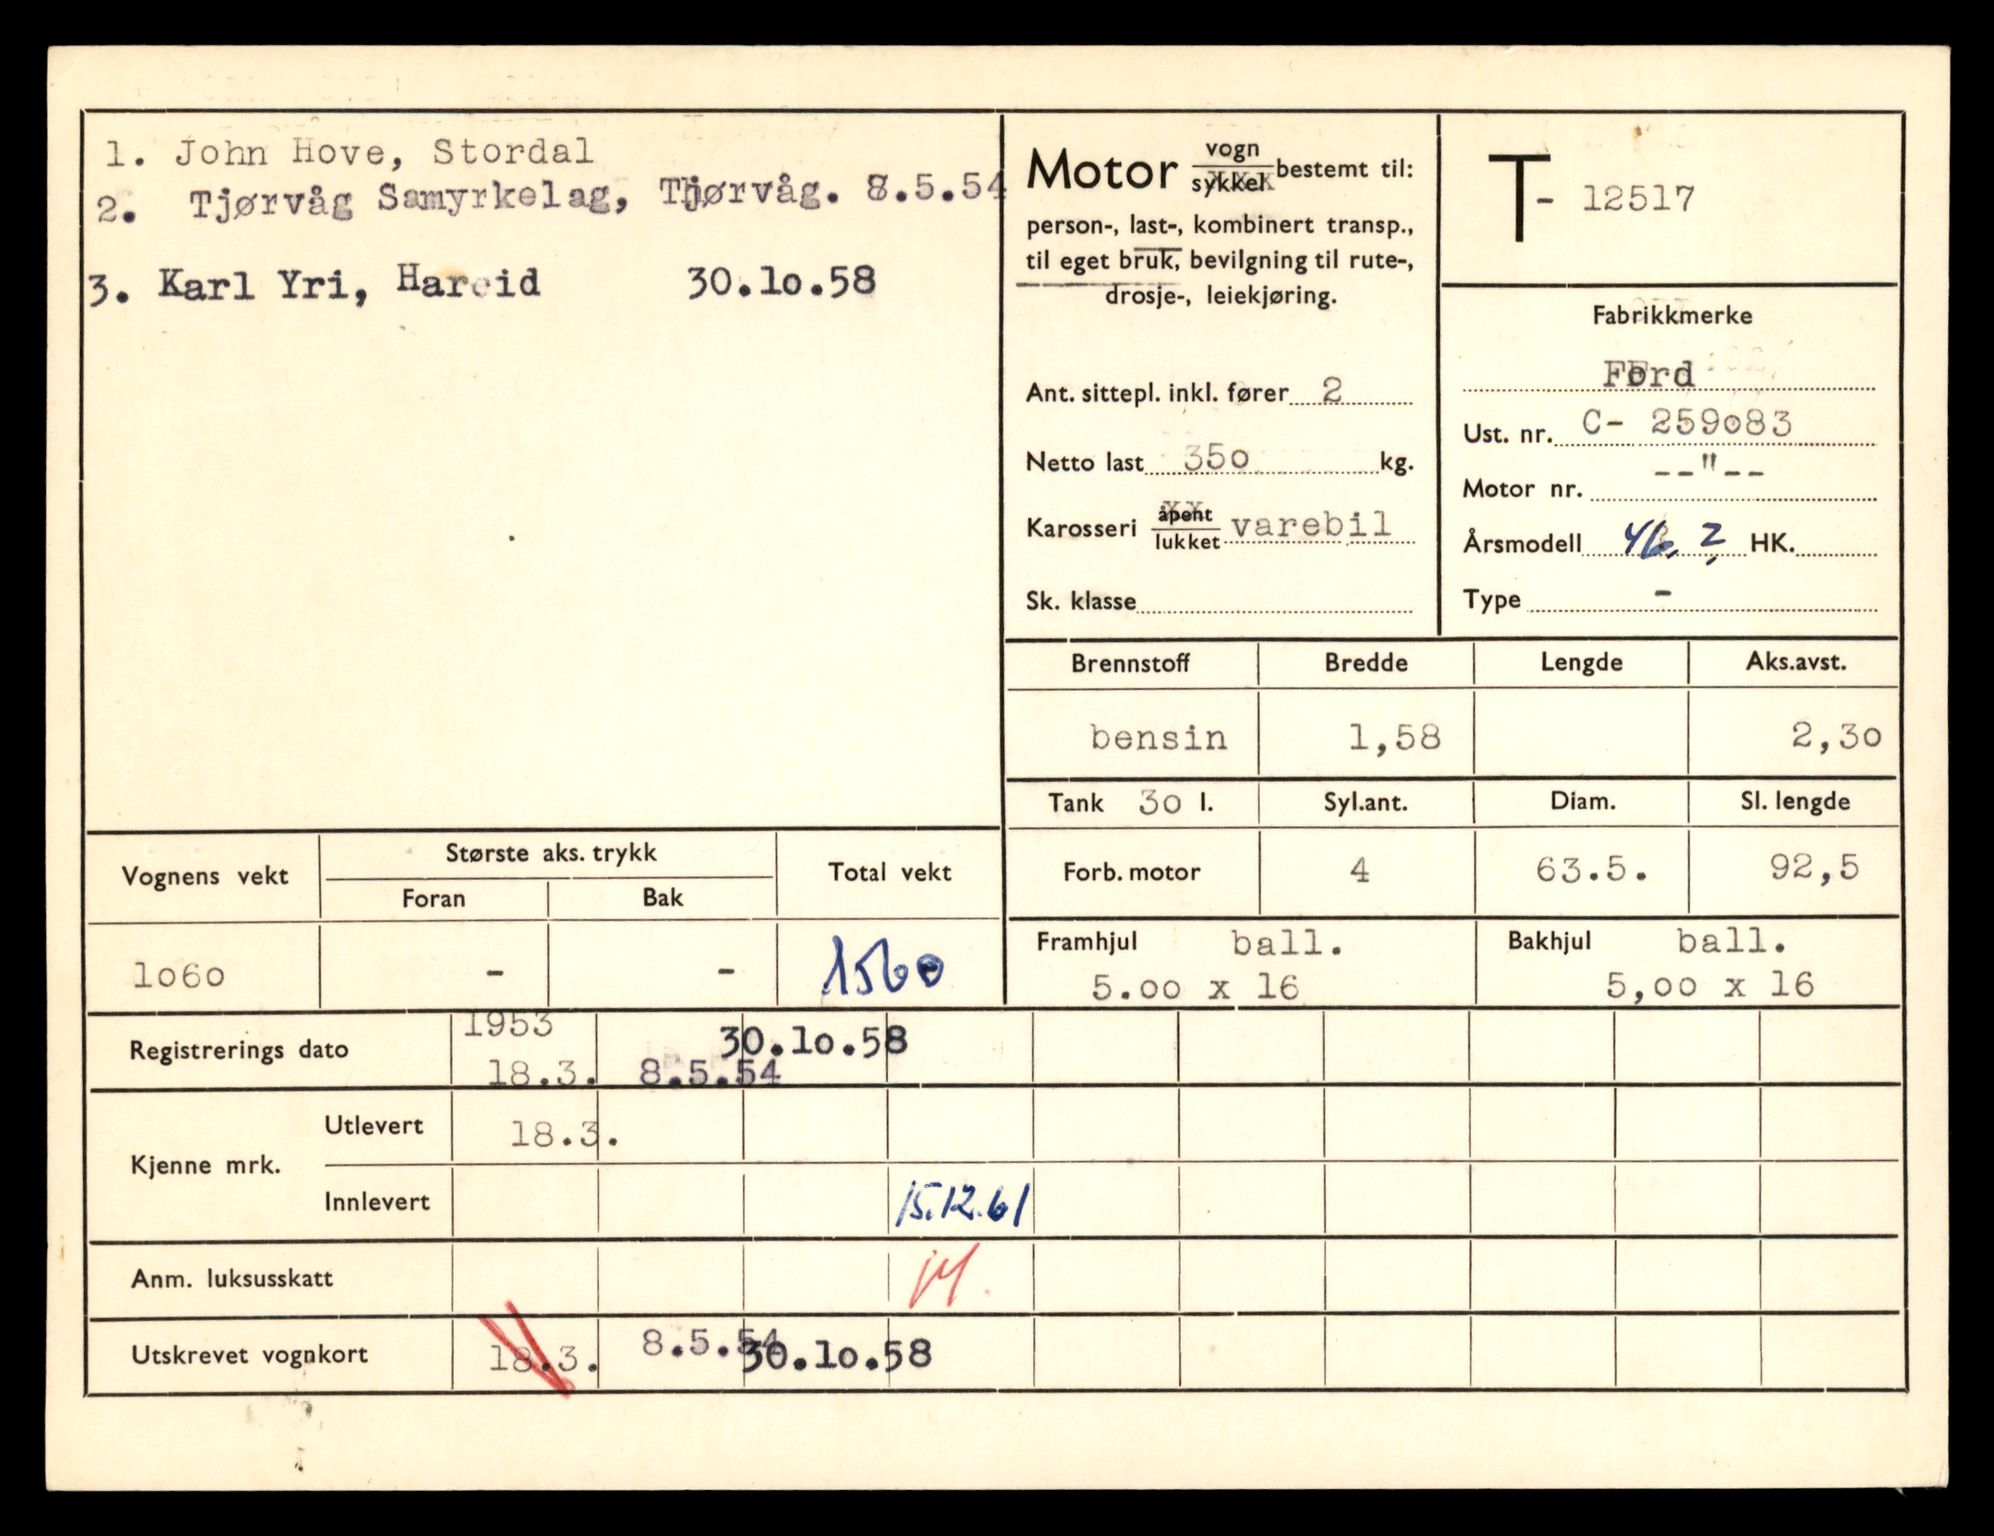 1. John Hove, Stordal
2. Tjørvåg Samyrkelag, Tjørvåg. 8.5.54
3. Karl Yri, Hareid 30.lo.58
Motor vogn
sykkel bestemt til:
person-, last-, kombinert transp.,
til eget bruk, bevilgning til rute-,
drosje-, leiekjøring.
Ant. sittepl. inkl. fører 2
Netto last 350 kg.
Karosseri åpent
lukket varebil
Sk. klasse
T- 12517
Fabrikkmerke
Ford
Ust. nr. C- 259o83
Motor nr. --"--
Årsmodell 46. HK.
Type -
Brennstoff Bredde Lengde Aks.avst.
bensin 1,58 2,3o
Tank 3o l. Syl.ant. Diam. Sl. lengde
Forb. motor 4 63.5. 92,5
Framhjul ball. Bakhjul ball.
5.oo x 16 5,oo x 16
Vognens vekt Største aks. trykk Total vekt
Foran Bak
lo6o - - 1560
Registrerings dato 1953 30.lo.58
18.3. 8.5.54
Kjenne mrk. Utlevert 18.3.
Innlevert 15.12.61
Anm. luksusskatt
Utskrevet vognkort 18.3. 8.5.54 30.lo.58